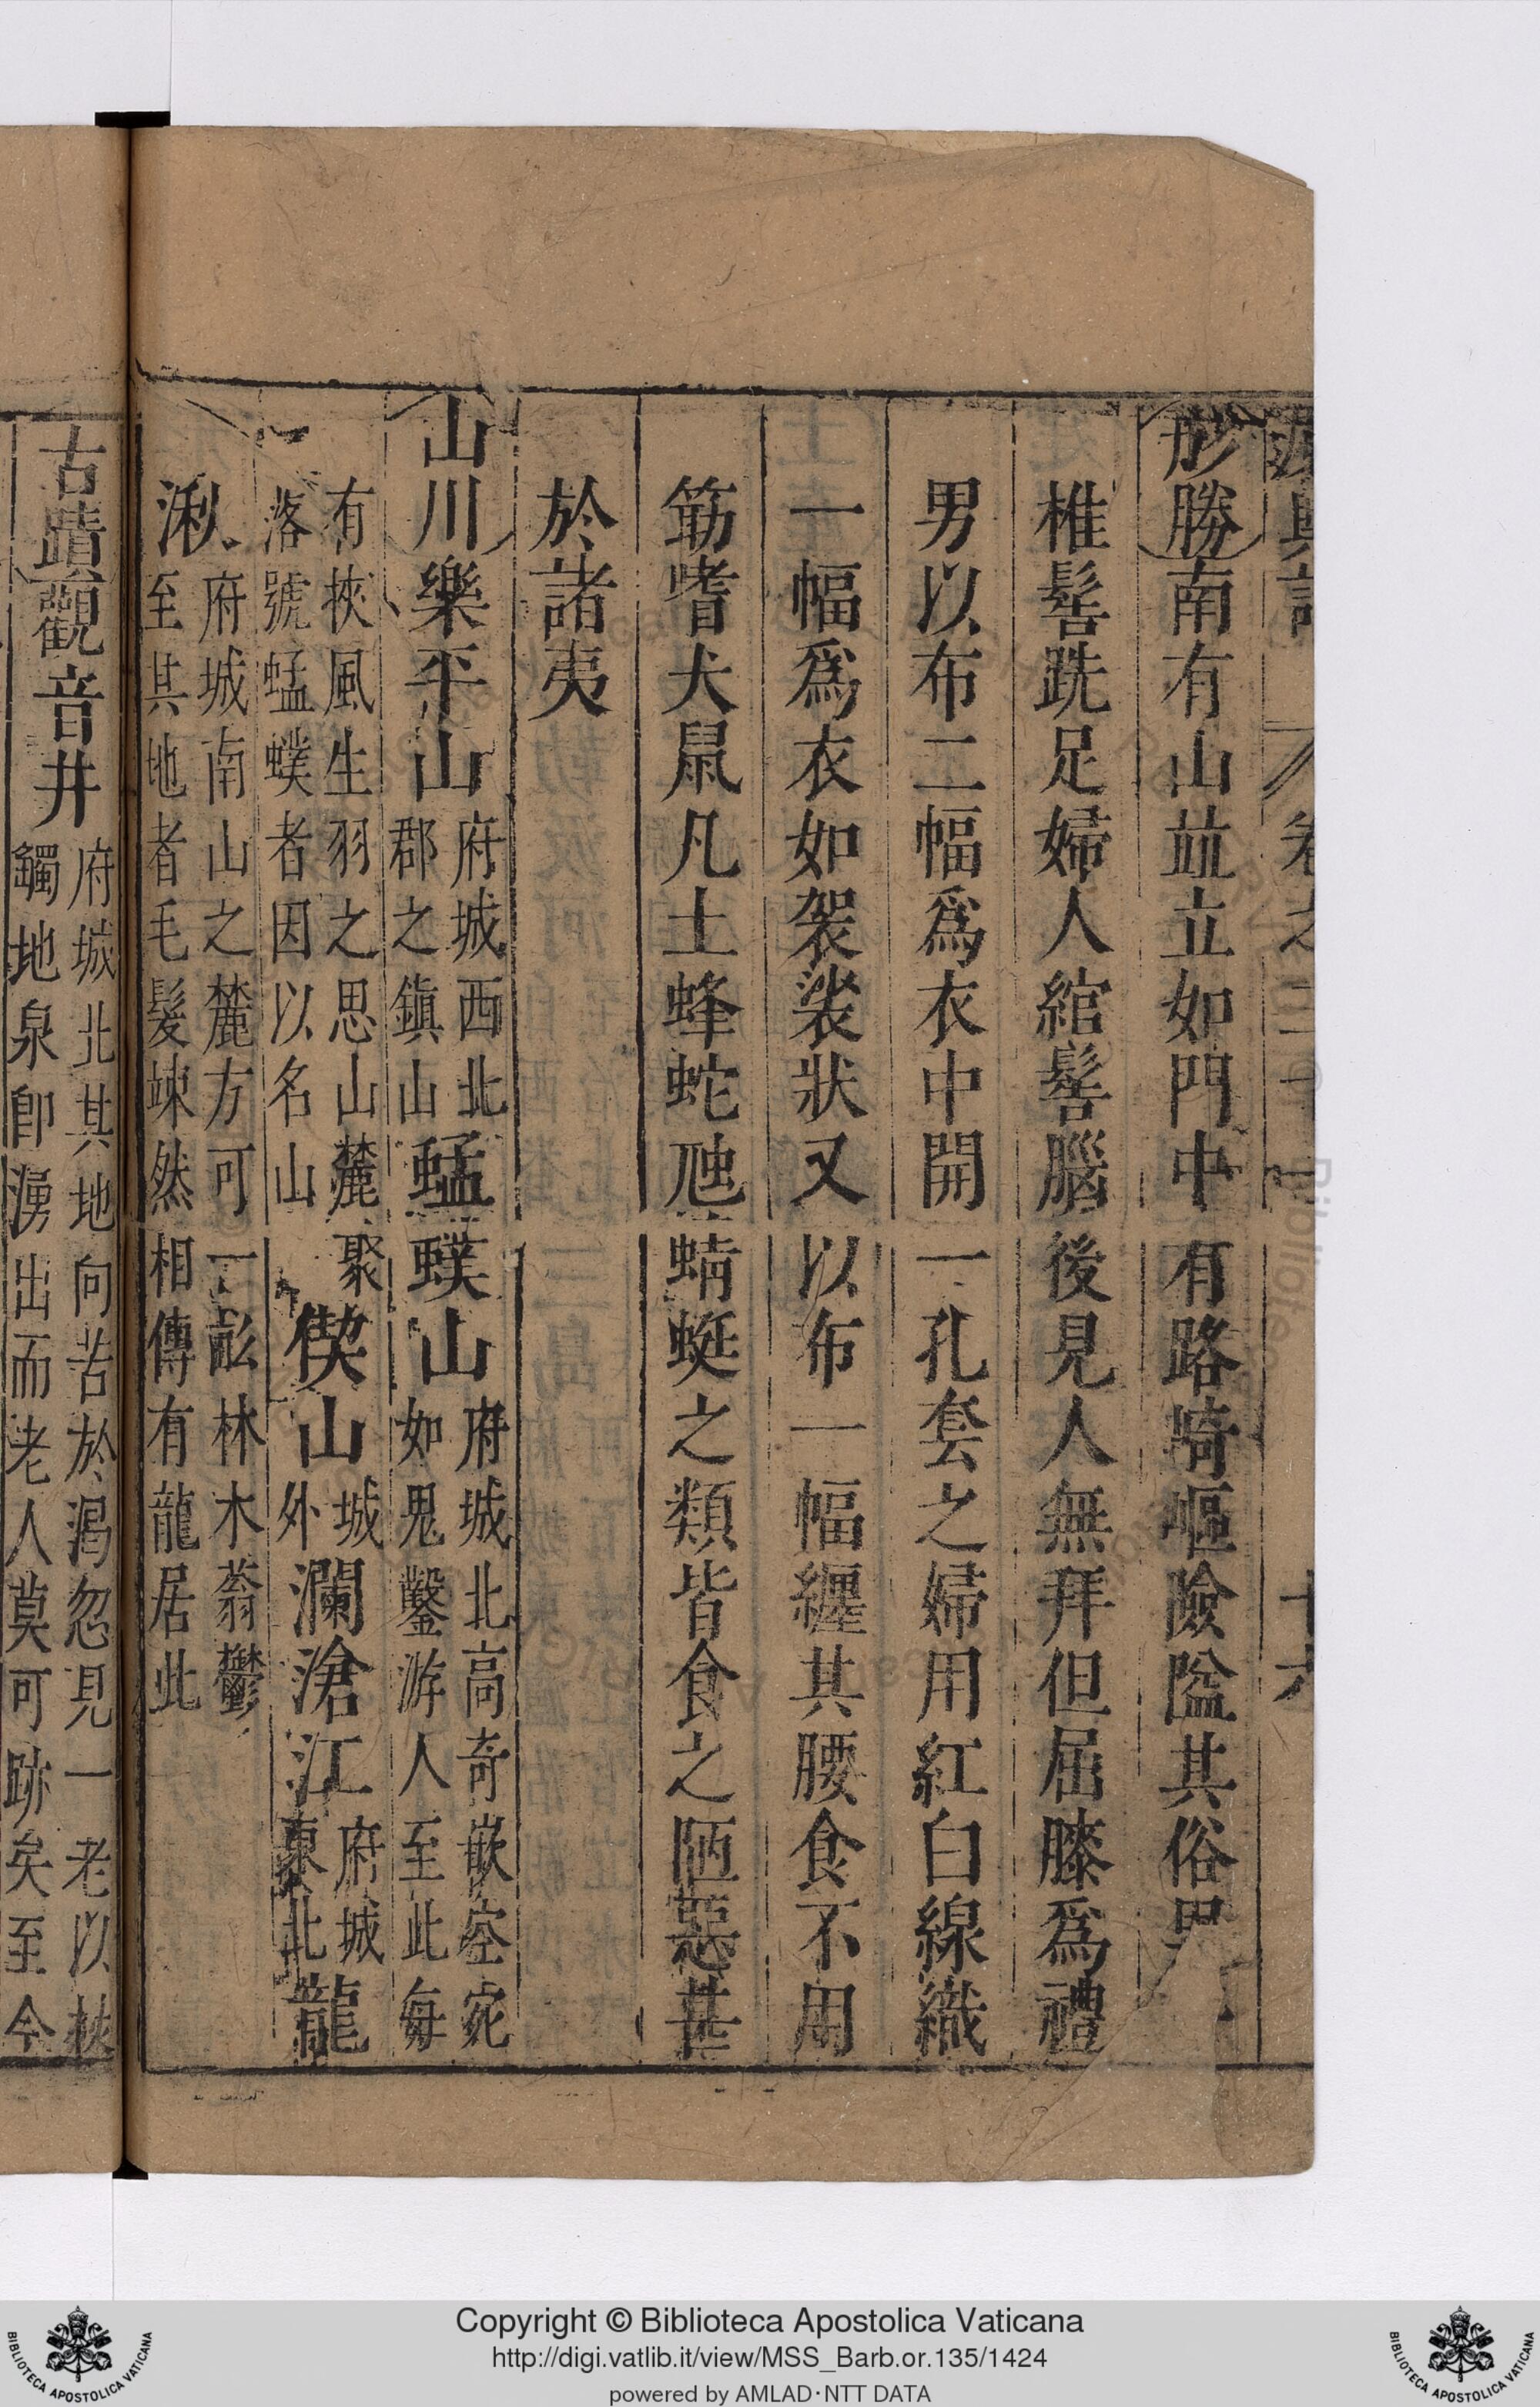 輿記 卷之二十一 十六
形勝南有山竝立如門中有路崎嶇險隘其俗男
椎髻跣足婦人綰髻腦後見人無拜但屈膝爲禮
男以布二幅爲衣中開一孔套之婦用紅白線織
一幅爲衣如袈裟狀又以布一幅纏其腰食不用
筯嗜犬鼠凡土蜂蛇虺蜻蜓之類皆食之陋惡甚
於諸夷
山川樂平山府城西北郡之鎮山蜢蠎山府城北高奇嵌空宛如鬼鑿游人至此每
有挾風生羽之思山麓聚落號蜢蠎者因以名山偰山城外瀾滄江府城東北龍
湫府城南山之麓方可一畝林木蓊鬱至其地者毛髮竦然相傳有龍居此
古蹟觀音井府城北其地向苦於渴忽見一老以杖钃地泉卽湧出而老人莫可跡矣至今
Copyright © Biblioteca Apostolica Vaticana
http://digi.vatlib.it/view/MSS_Barb.or.135/1424
powered by AMLAD·NTT DATA
BIBLIOTECA APOSTOLICA VATICANA
BIBLIOTECA APOSTOLICA VATICANA